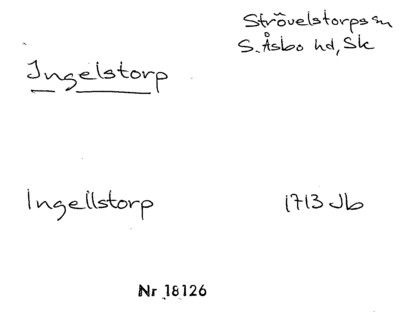 Strövelstorps sn
S. Åsbo hd, Sk
Ingelstorp
Ingellstorp 1713 Jb
Nr 18126